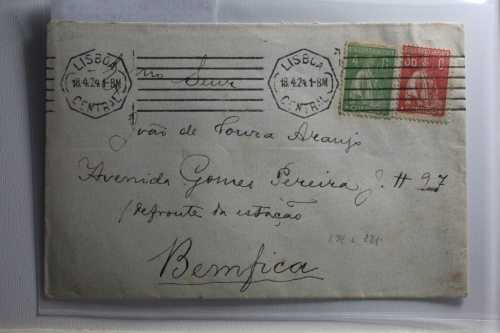 LISBOA
18.4.24.1-8M
CENTRAL
LISBOA
18.4.24.1-8M
CENTRAL
4 C.
CORREIO
CORREIO
João de Souza Araujo
Avenida Gomes Pereira J. H 97
(defronte da estação
Bemfica